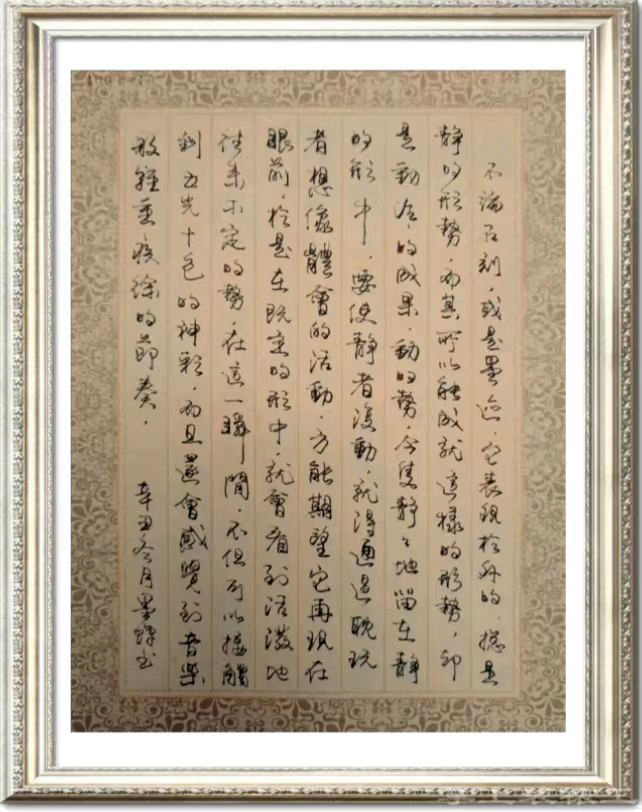 不論石刻，或是墨迹，它表現於外的，總是
静的形勢，而其所以能成就這樣的形勢，却
是動作的成果，動的勢，今隻静静地留在静
的形中，要使静者復動，就得通過耽玩
者想像體會的活動，方能期望它再現在
眼前，於是在既定的形中，就會看到活潑地
往来不定的勢，在這一瞬間，不但可以接觸
到五光十色的神彩，而且還會感覺到音樂
般輕重疾徐的節奏，
辛丑冬月墨蝉书